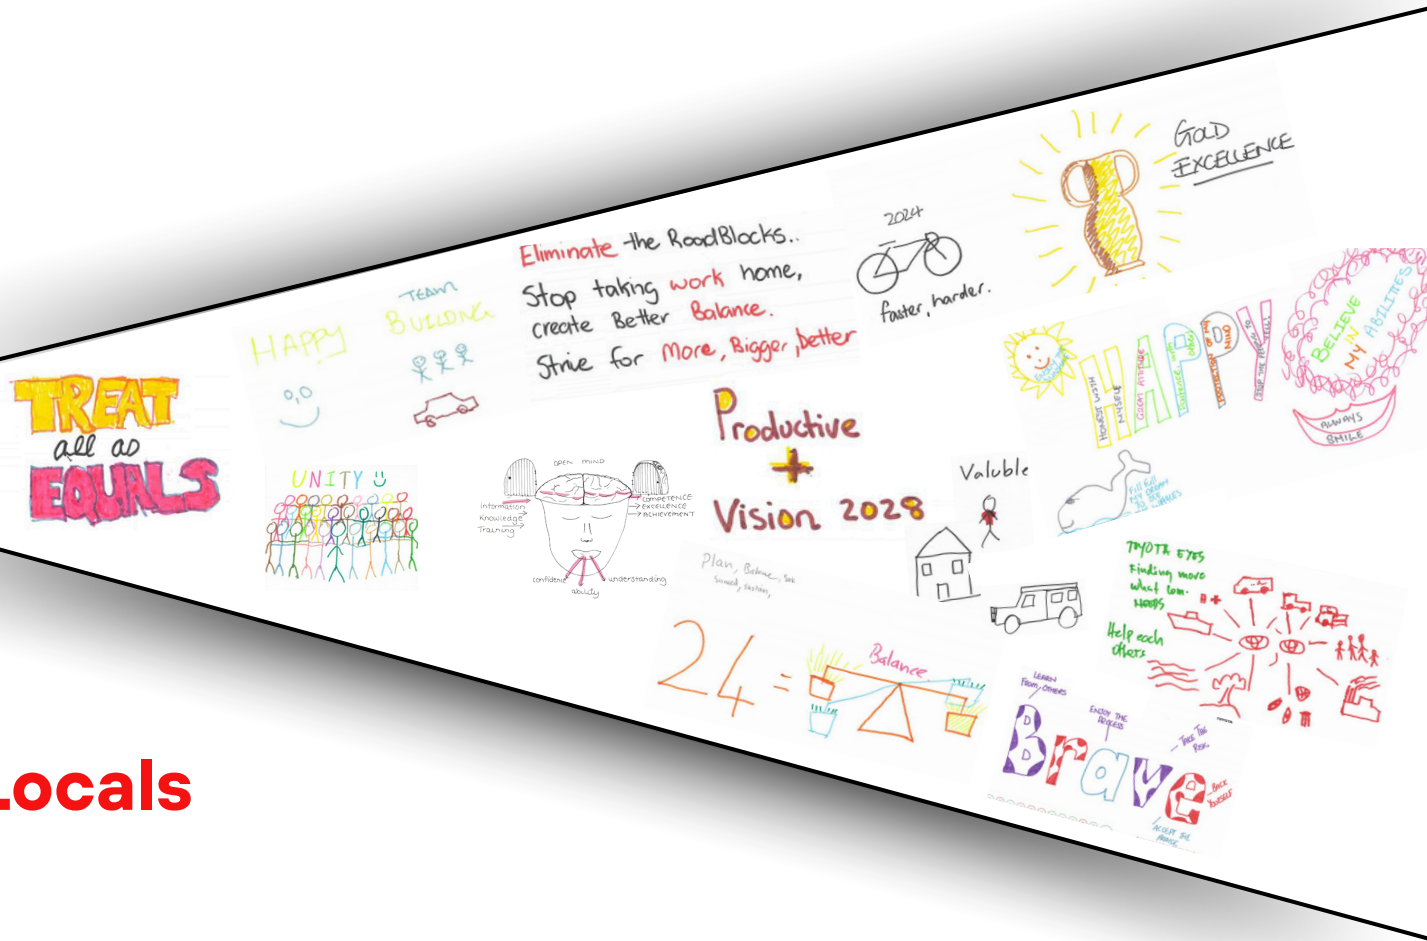 TREAT
all as
EQUALS
HAPPY
TEAM
BUILDING
UNITY
Eliminate the RoadBlocks..
Stop taking work home,
create Better Balance.
Strive for More, Bigger, better
2024
faster, harder.
GOLD
EXCELLENCE
OPEN MIND
Information
Knowledge
Training
COMPETENCE
EXCELLENCE
ACHIEVEMENT
confidence
ability
understanding
Productive
+
Vision 2028
Valuble
Plan, Balance,
24 =
Balance
HAPPY
HONEST WITH
MYSELF
GREAT ATTITUDE
BELIEVE
IN
MY ABILITIES
ALWAYS
SMILE
TOYOTA EYES
Finding more
what com.
NEEDS
Help each
others
LEARN
FROM OTHERS
ENJOY THE
PROCESS
TAKE THE
RISK
Brave
BACK
YOURSELF
ACCEPT THE
TOYOTA
Locals